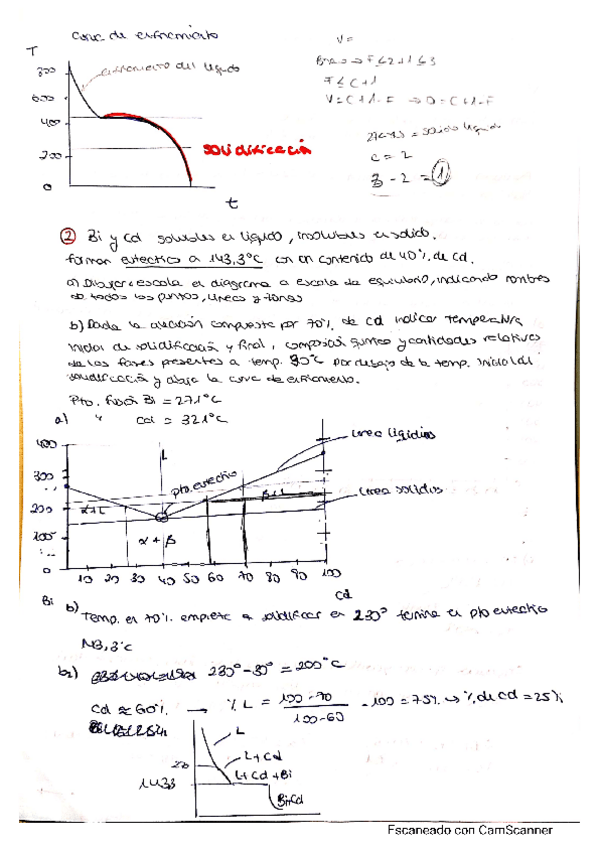 Curva de enfriamiento
T
V=
800
enfriamiento del líquido
F ≤ C+1
600
V=C+1-F ⇒ 0=C+1-F
400
200
solidificación
C=2
3-2=1
0
t
② Bi y Cd solubles en líquido, insolubles en sólido.
forman eutectico a 143,3°C con un contenido de 40% de Cd.
a) Dibujar a escala el diagrama a escala de equilibrio, indicando nombres
de todos los puntos, lineas y zonas
b) Dada la aleación compuesta por 70% de Cd indicar temperatura
inicial de solidificación y final, composición química y cantidades relativas
de las fases presentes a temp. 30°C por debajo de la temp. inicio de
solidificación y dibuje la curva de enfriamiento.
Pto. fusión Bi = 271°C
a) " Cd = 321°C
400
L
linea líquidus
300
pto. eutectico
β+L
linea solidus
200
α+L
100
α+β
0
10 20 30 40 50 60 70 80 90 100
Cd
Bi
b) Temp. en 70% empieza a solidificar en 230° termina en pto eutectico
143,3°C
b2) 230°-30° = 200°C
Cd ≈ 60% → % L = 100-70 / 100-60 · 100 = 75% → % de Cd = 25%
L
L+Cd
L+Cd+Bi
143,3
Bi+Cd
Escaneado con CamScanner